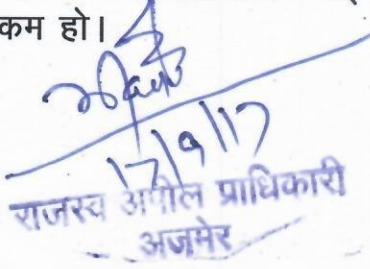 कम हो।
17/9/17
राजस्व अपील प्राधिकारी
अजमेर